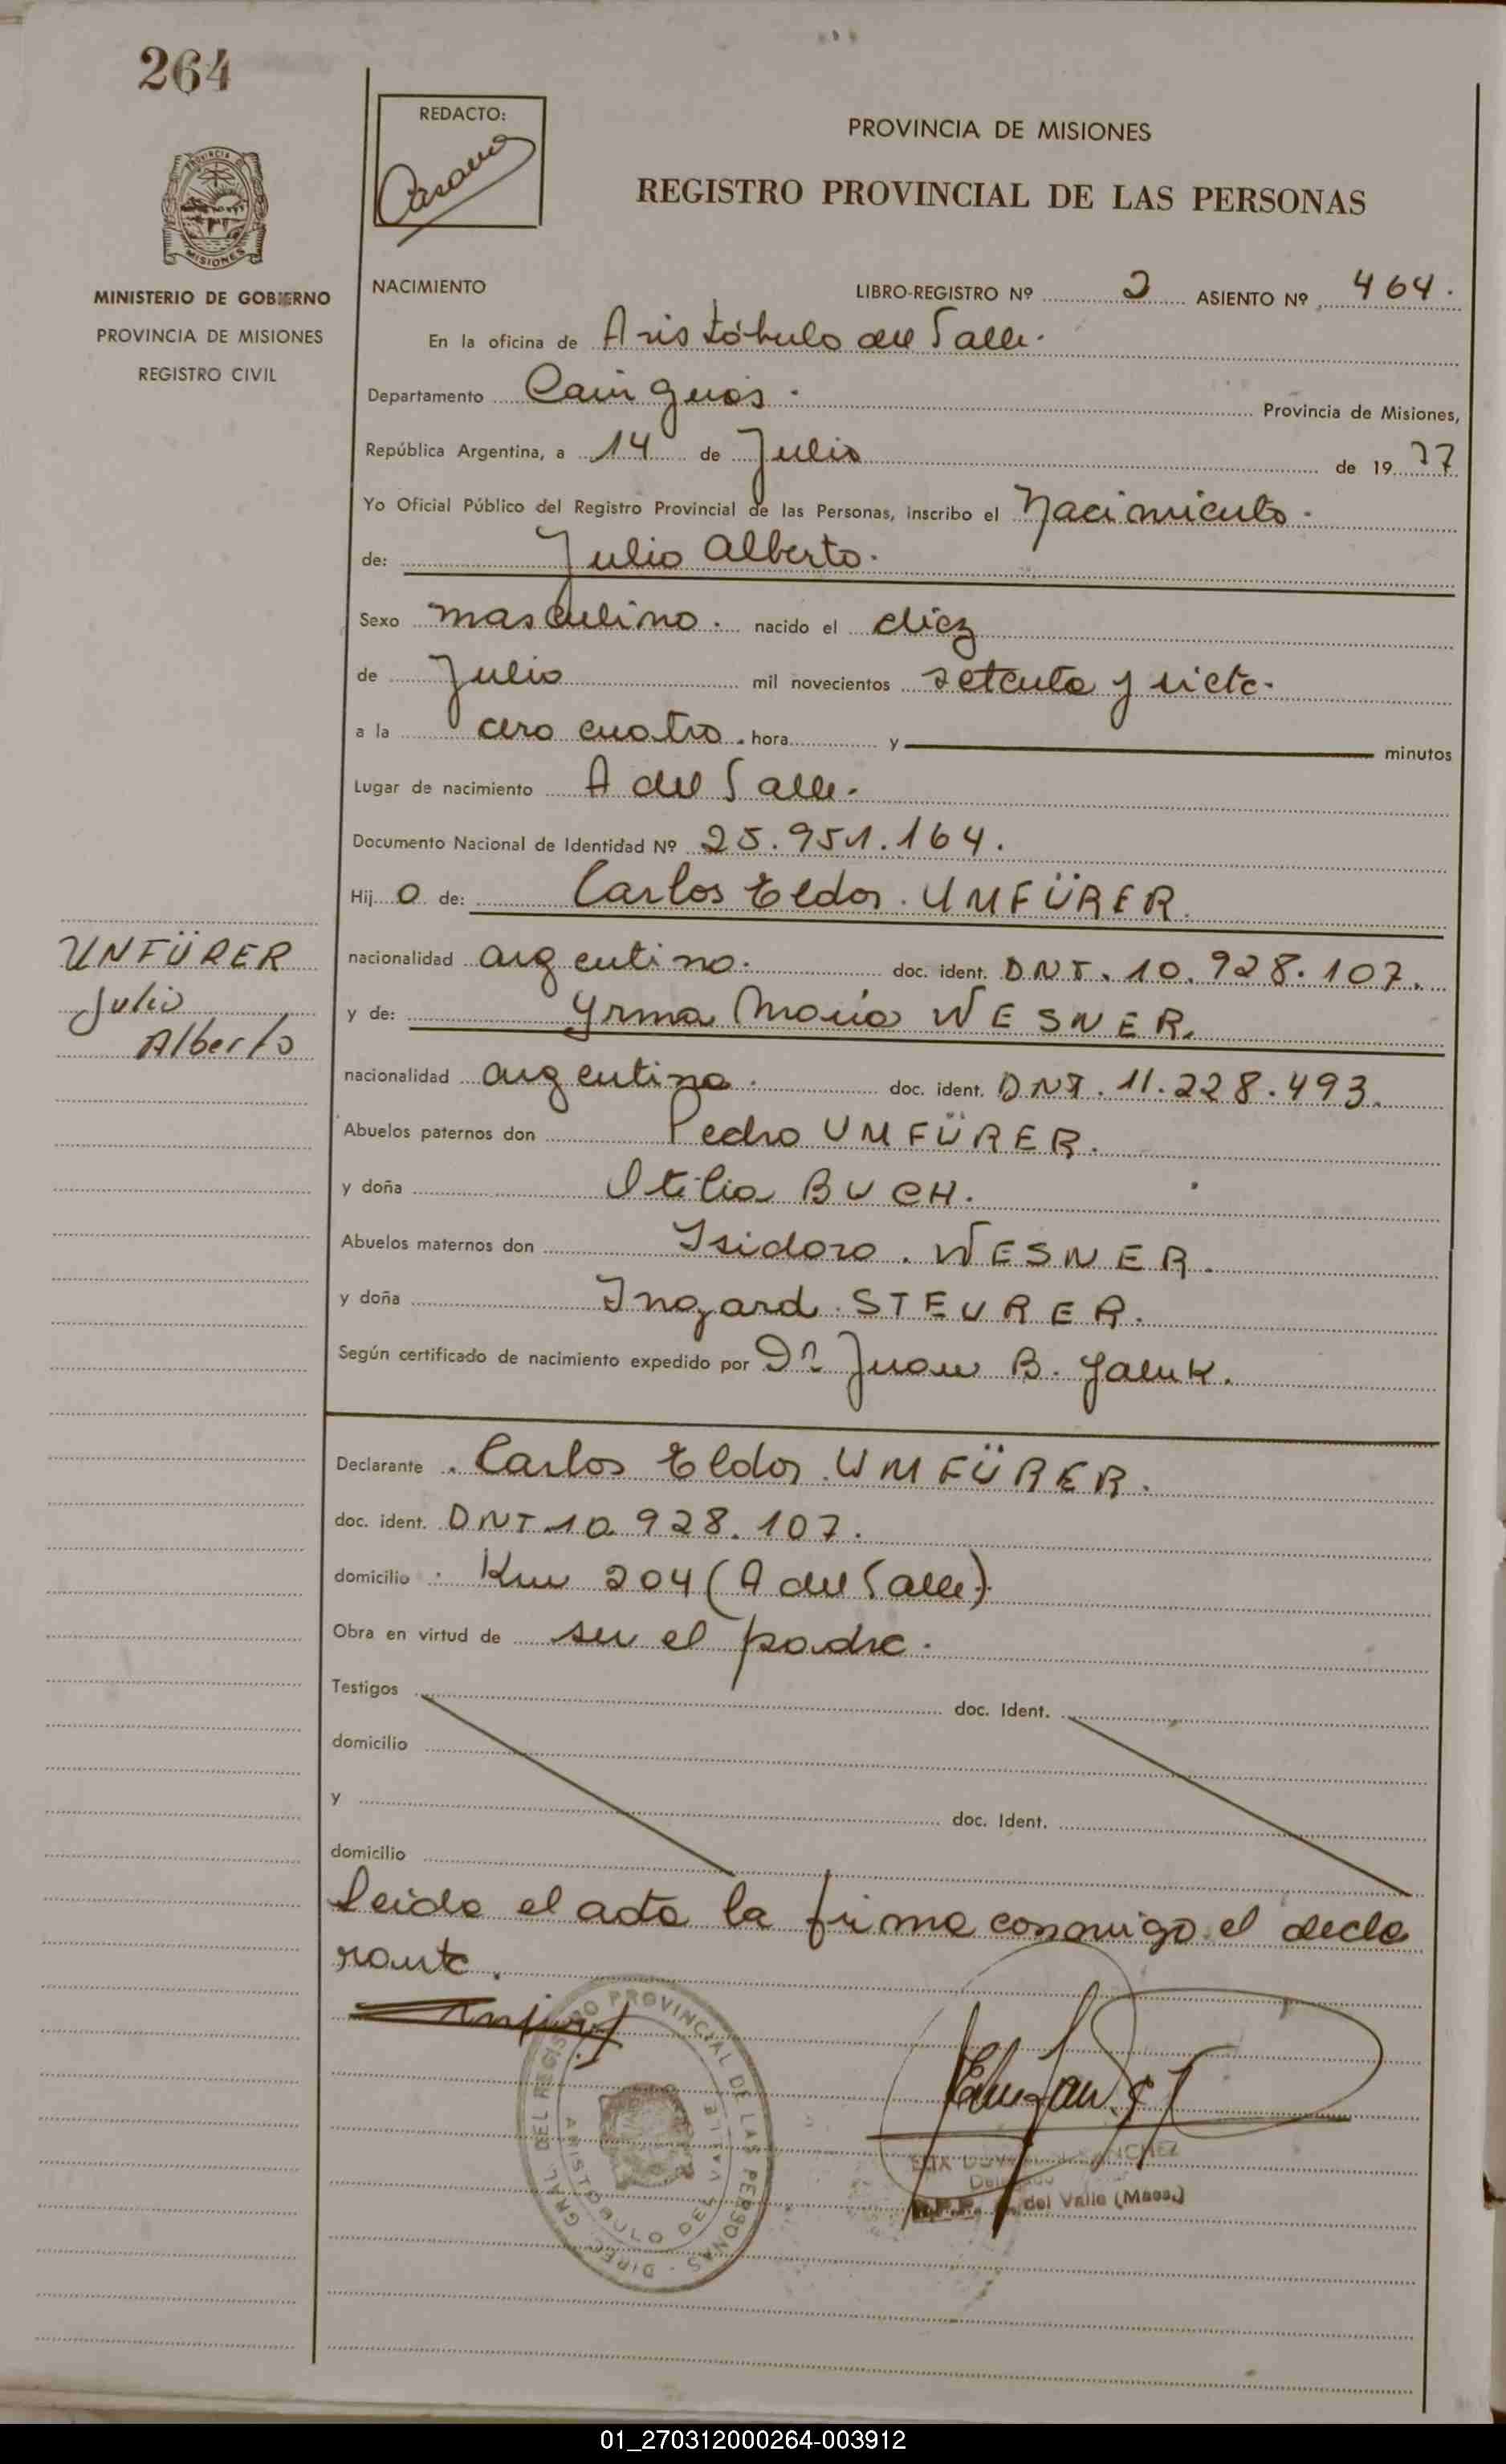 264
REDACTO:
PROVINCIA DE MISIONES
REGISTRO PROVINCIAL DE LAS PERSONAS
MINISTERIO DE GOBIERNO
PROVINCIA DE MISIONES
REGISTRO CIVIL
NACIMIENTO
LIBRO-REGISTRO Nº 2 ASIENTO Nº 464.
En la oficina de Aristóbulo del Valle.
Departamento Cainguás. Provincia de Misiones,
República Argentina, a 14 de Julio de 19 77
Yo Oficial Público del Registro Provincial de las Personas, inscribo el Nacimiento.
de: Julio Alberto.
Sexo masculino. nacido el diez
de Julio mil novecientos setenta y siete.
a la cero cuatro. hora y minutos
Lugar de nacimiento A del Valle.
Documento Nacional de Identidad Nº 25.951.164.
Hij o de: Carlos Eldor. UMFÜRER.
UNFÜRER
Julio
Alberto
nacionalidad argentino. doc. ident. DNI. 10.928.107.
y de: Yrma María WESNER.
nacionalidad argentina. doc. ident. DNI. 11.228.493.
Abuelos paternos don Pedro UMFÜRER.
y doña Otilia BUCH.
Abuelos maternos don Isidoro. WESNER.
y doña Ingard. STEURER.
Según certificado de nacimiento expedido por Dr. Juan B.
Declarante. Carlos Eldor. UMFÜRER.
doc. ident. DNI.10.928.107.
domicilio. Km 204 (A del Valle).
Obra en virtud de ser el padre.
Testigos doc. Ident.
domicilio
y doc. Ident.
domicilio
Leida el acta la firma conmigo el decla
rante.
DIREC. GRAL. DEL REGISTRO PROVINCIAL DE LAS PERSONAS
ARISTOBULO DEL VALLE
Delegado
del Valle (Mnes.)
01_270312000264-003912